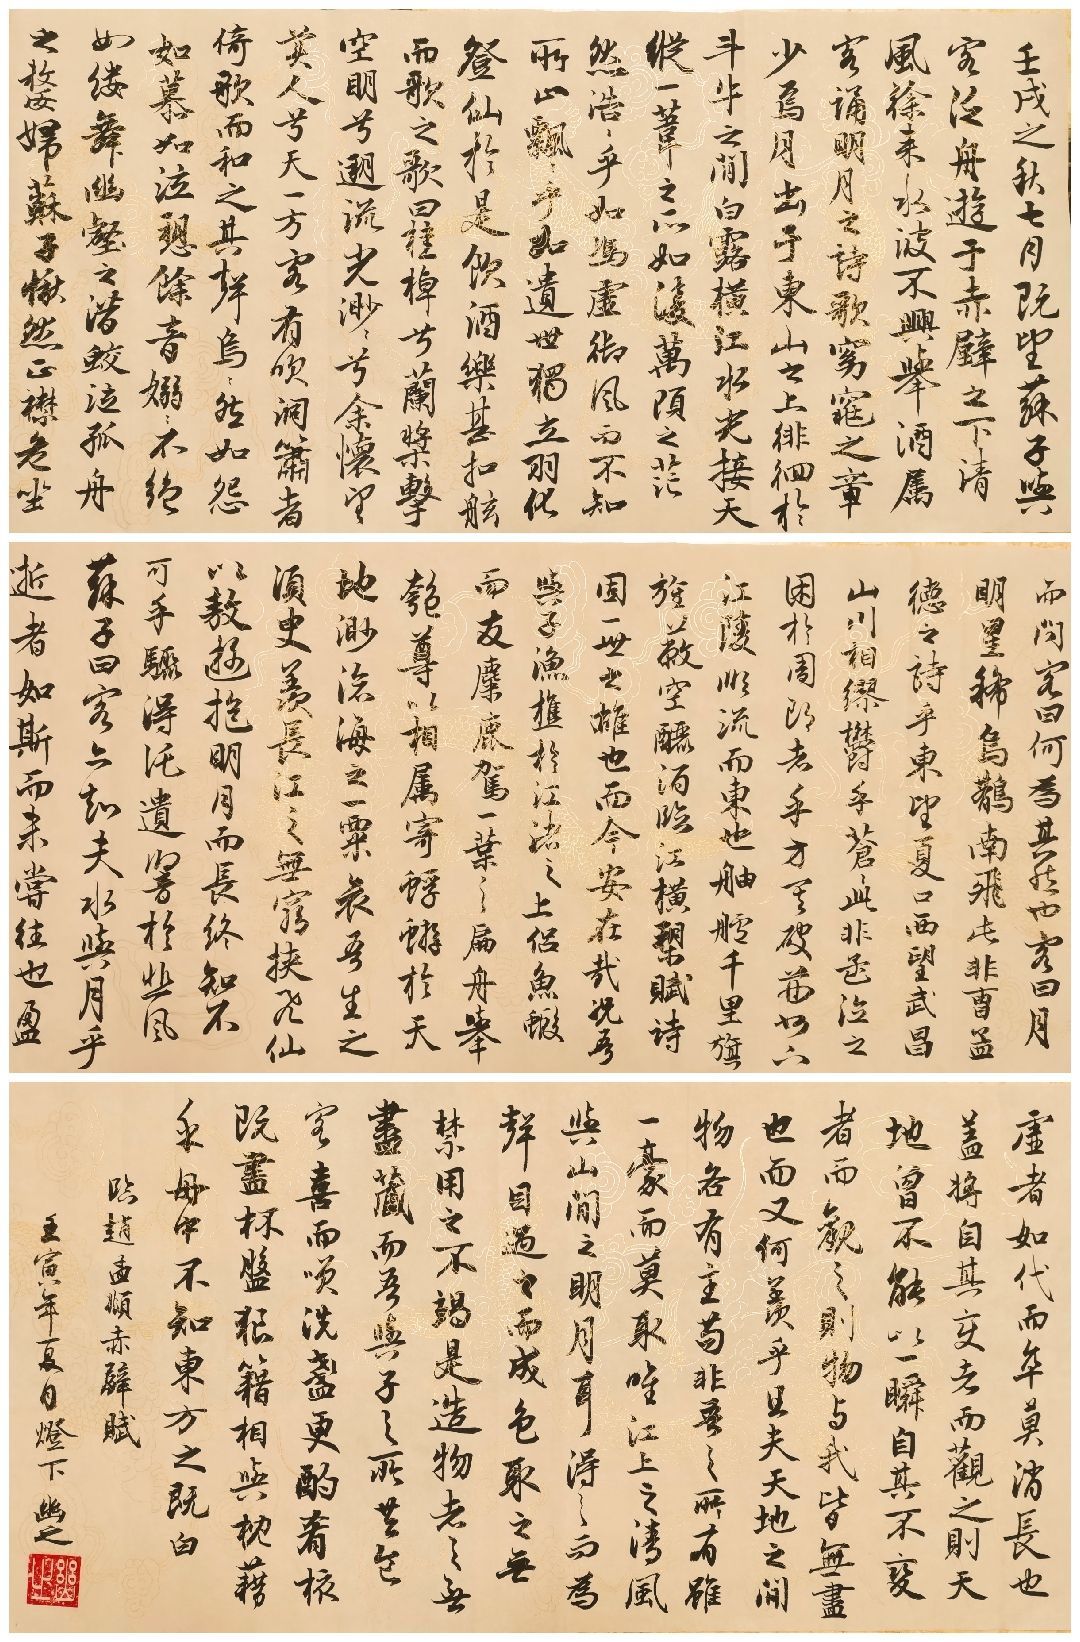 壬戌之秋七月既望蘇子與
客泛舟遊于赤壁之下清
風徐来水波不興舉酒属
客誦明月之詩歌窈窕之章
少焉月出于東山之上徘徊於
斗牛之間白露横江水光接天
縱一葦之所如凌萬頃之茫
然浩〻乎如馮虚御風而不知
所止飄〻乎如遺世獨立羽化
登仙於是飲酒樂甚扣舷
而歌之歌曰桂棹兮蘭槳擊
空明兮遡流光渺〻兮余懷望
美人兮天一方客有吹洞簫者
倚歌而和之其聲烏〻然如怨
如慕如泣如愬餘音嫋〻不絶
如縷舞幽壑之潜蛟泣孤舟
之嫠婦蘇子愀然正襟危坐
而問客曰何為其然也客曰月
明星稀烏鵲南飛此非曹孟
德之詩乎東望夏口西望武昌
山川相繆欝乎蒼〻此非孟德之
困於周郎者乎方其破荊州下
江陵順流而東也舳艫千里旗
旌蔽空釃酒臨江横槊賦詩
固一世之雄也而今安在哉况吾
與子漁樵於江渚之上侣魚蝦
而友麋鹿駕一葉之扁舟舉
匏尊以相属寄蜉蝣於天
地渺滄海之一粟哀吾生之
須臾羨長江之無窮挟飛仙
以敖遊抱明月而長終知不
可乎驟得託遺響於悲風
蘇子曰客亦知夫水與月乎
逝者如斯而未嘗往也盈
虚者如代而卒莫消長也
盖将自其变者而觀之則天
地曾不能以一瞬自其不变
者而觀之則物与我皆無盡
也而又何羨乎且夫天地之間
物各有主苟非吾之所有雖
一豪而莫取唯江上之清風
與山間之明月耳得之而為
聲目遇之而成色取之無
禁用之不竭是造物者之無
盡藏而吾與子之所共食
客喜而咲洗盞更酌肴核
既盡杯盤狼籍相與枕藉
乎舟中不知東方之既白
臨趙孟頫赤壁賦
壬寅年夏月燈下幽之